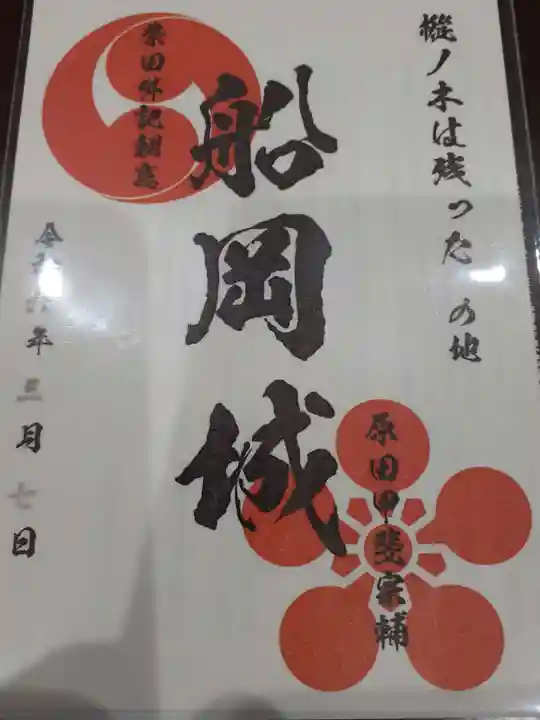 樅ノ木は残った の地
船岡城
柴田外記朝意
原田甲斐宗輔
令和六年三月七日